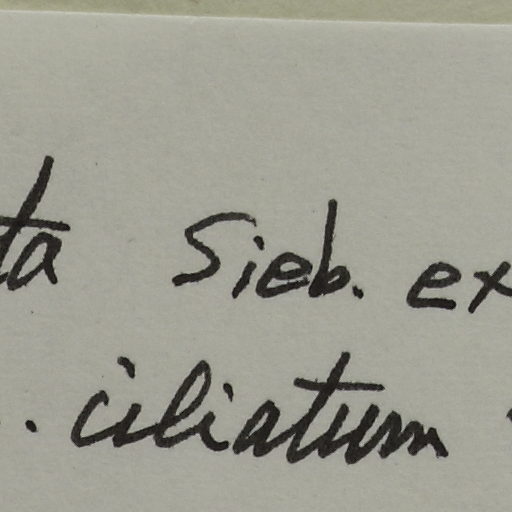 ta Sieb. ex
. ciliatum